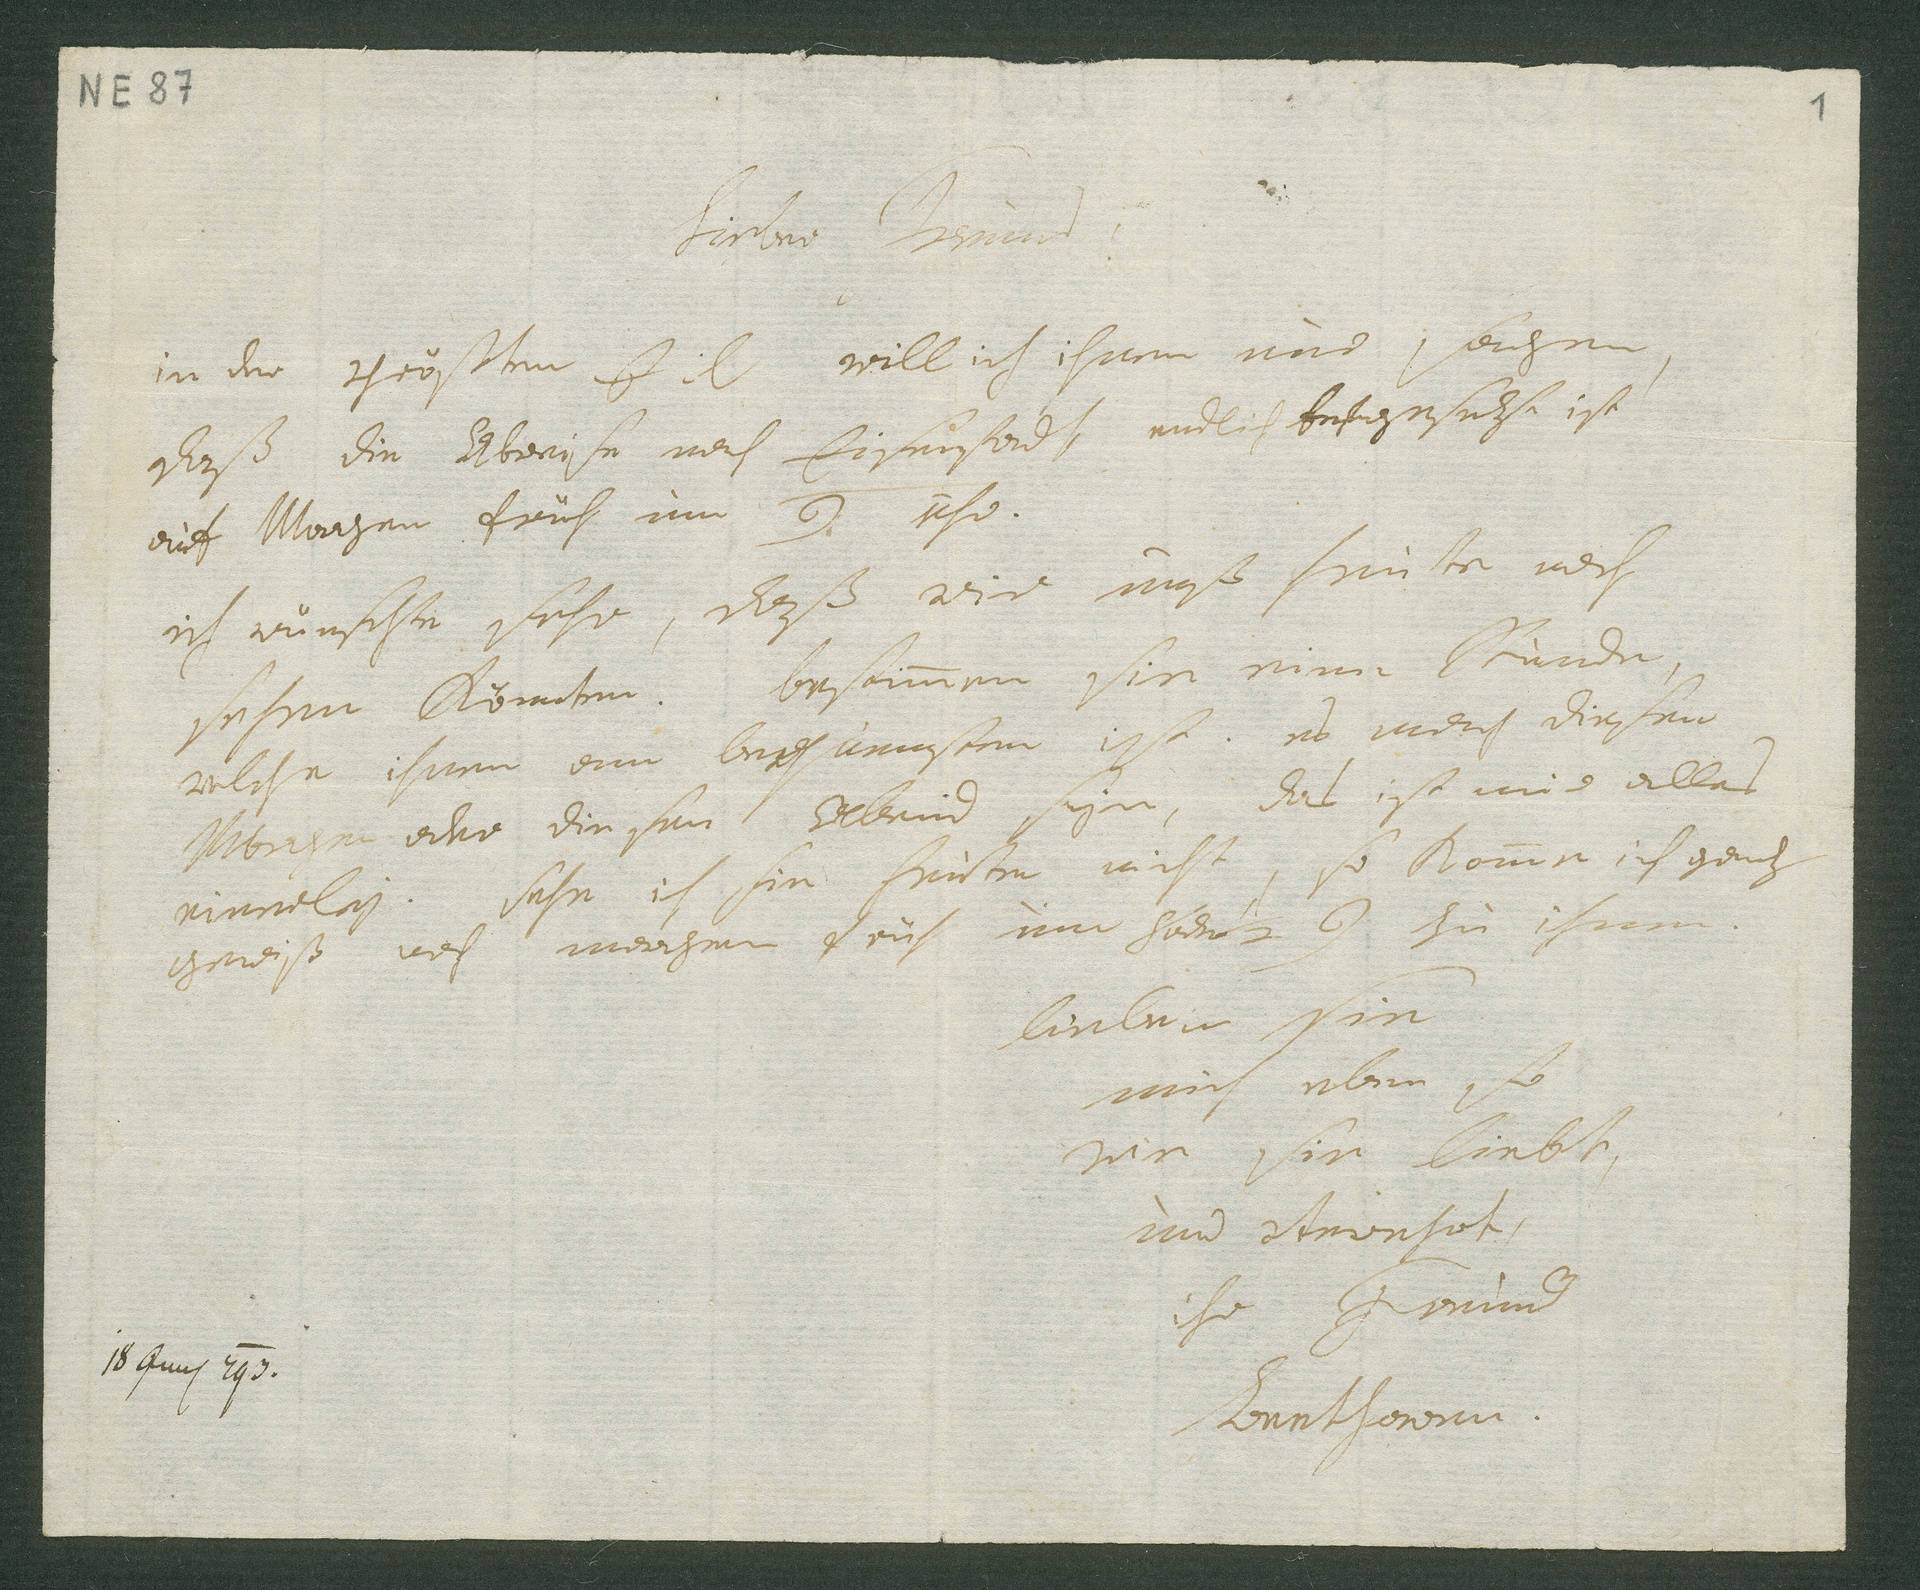 NE 87
1
Lieber Freund!
in der größten Eil will ich ihnen nur sagen,
daß die Abreise nach Eisenstadt endlich festgesetzt ist
auf Morgen früh um 9 uhr.
ich wünschte sehr, daß wir unß heute noch
sehen könnten. bestim̅en sie eine Stunde,
welche ihnen am bequemsten ist. es mag diesen
Morgen oder diesen Abend sejn, das ist mir alles
einerlej. sehe ich sie heute nicht, so kom̅e ich ganz
gewiß noch morgen früh um halb 9 zu ihnen.
lieben sie
mich eben so
wie sie liebt,
und verehrt,
ihr Freund
Beethoven.
18 Juny 793.